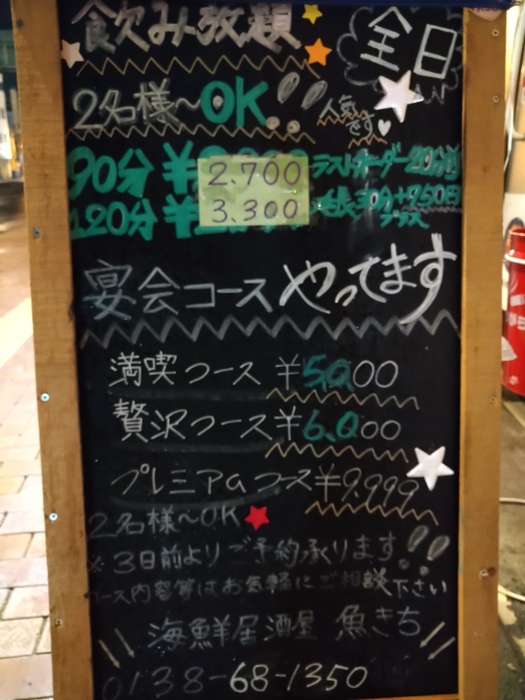 飲み放題
全日
2名様〜OK!!
人気です♡
90分 ¥2.700 ラストオーダー20分前
120分 ¥3.300 延長30分+750円
プラス
宴会コース やってます
満喫コース ¥5,000
贅沢コース ¥6,000
プレミアムコース ¥9,999
2名様〜OK
※3日前よりご予約承ります!!
コース内容等はお気軽にご相談下さい
海鮮居酒屋 魚きち
0138-68-1350